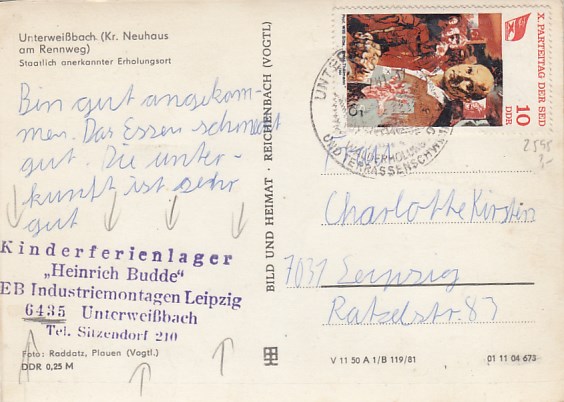 Unterweißbach (Kr. Neuhaus
am Rennweg)
Staatlich anerkannter Erholungsort
Bin gut angekom-
men. Das Essen schmeckt
gut. Die unter-
kunft ist sehr
gut
Kinderferienlager
„Heinrich Budde"
EB Industriemontagen Leipzig
6435 Unterweißbach
Tel. Sitzendorf 210
Foto: Raddatz, Plauen (Vogtl.)
DDR 0,25 M
BILD UND HEIMAT · REICHENBACH (VOGTL)
X. PARTEITAG DER SED
10
DDR
UND TERRASSENSCHW
2595
Charlotte Kirstein
7031 Leipzig
Ratzelstr. 83
V 11 50 A 1/B 119/81
01 11 04 673